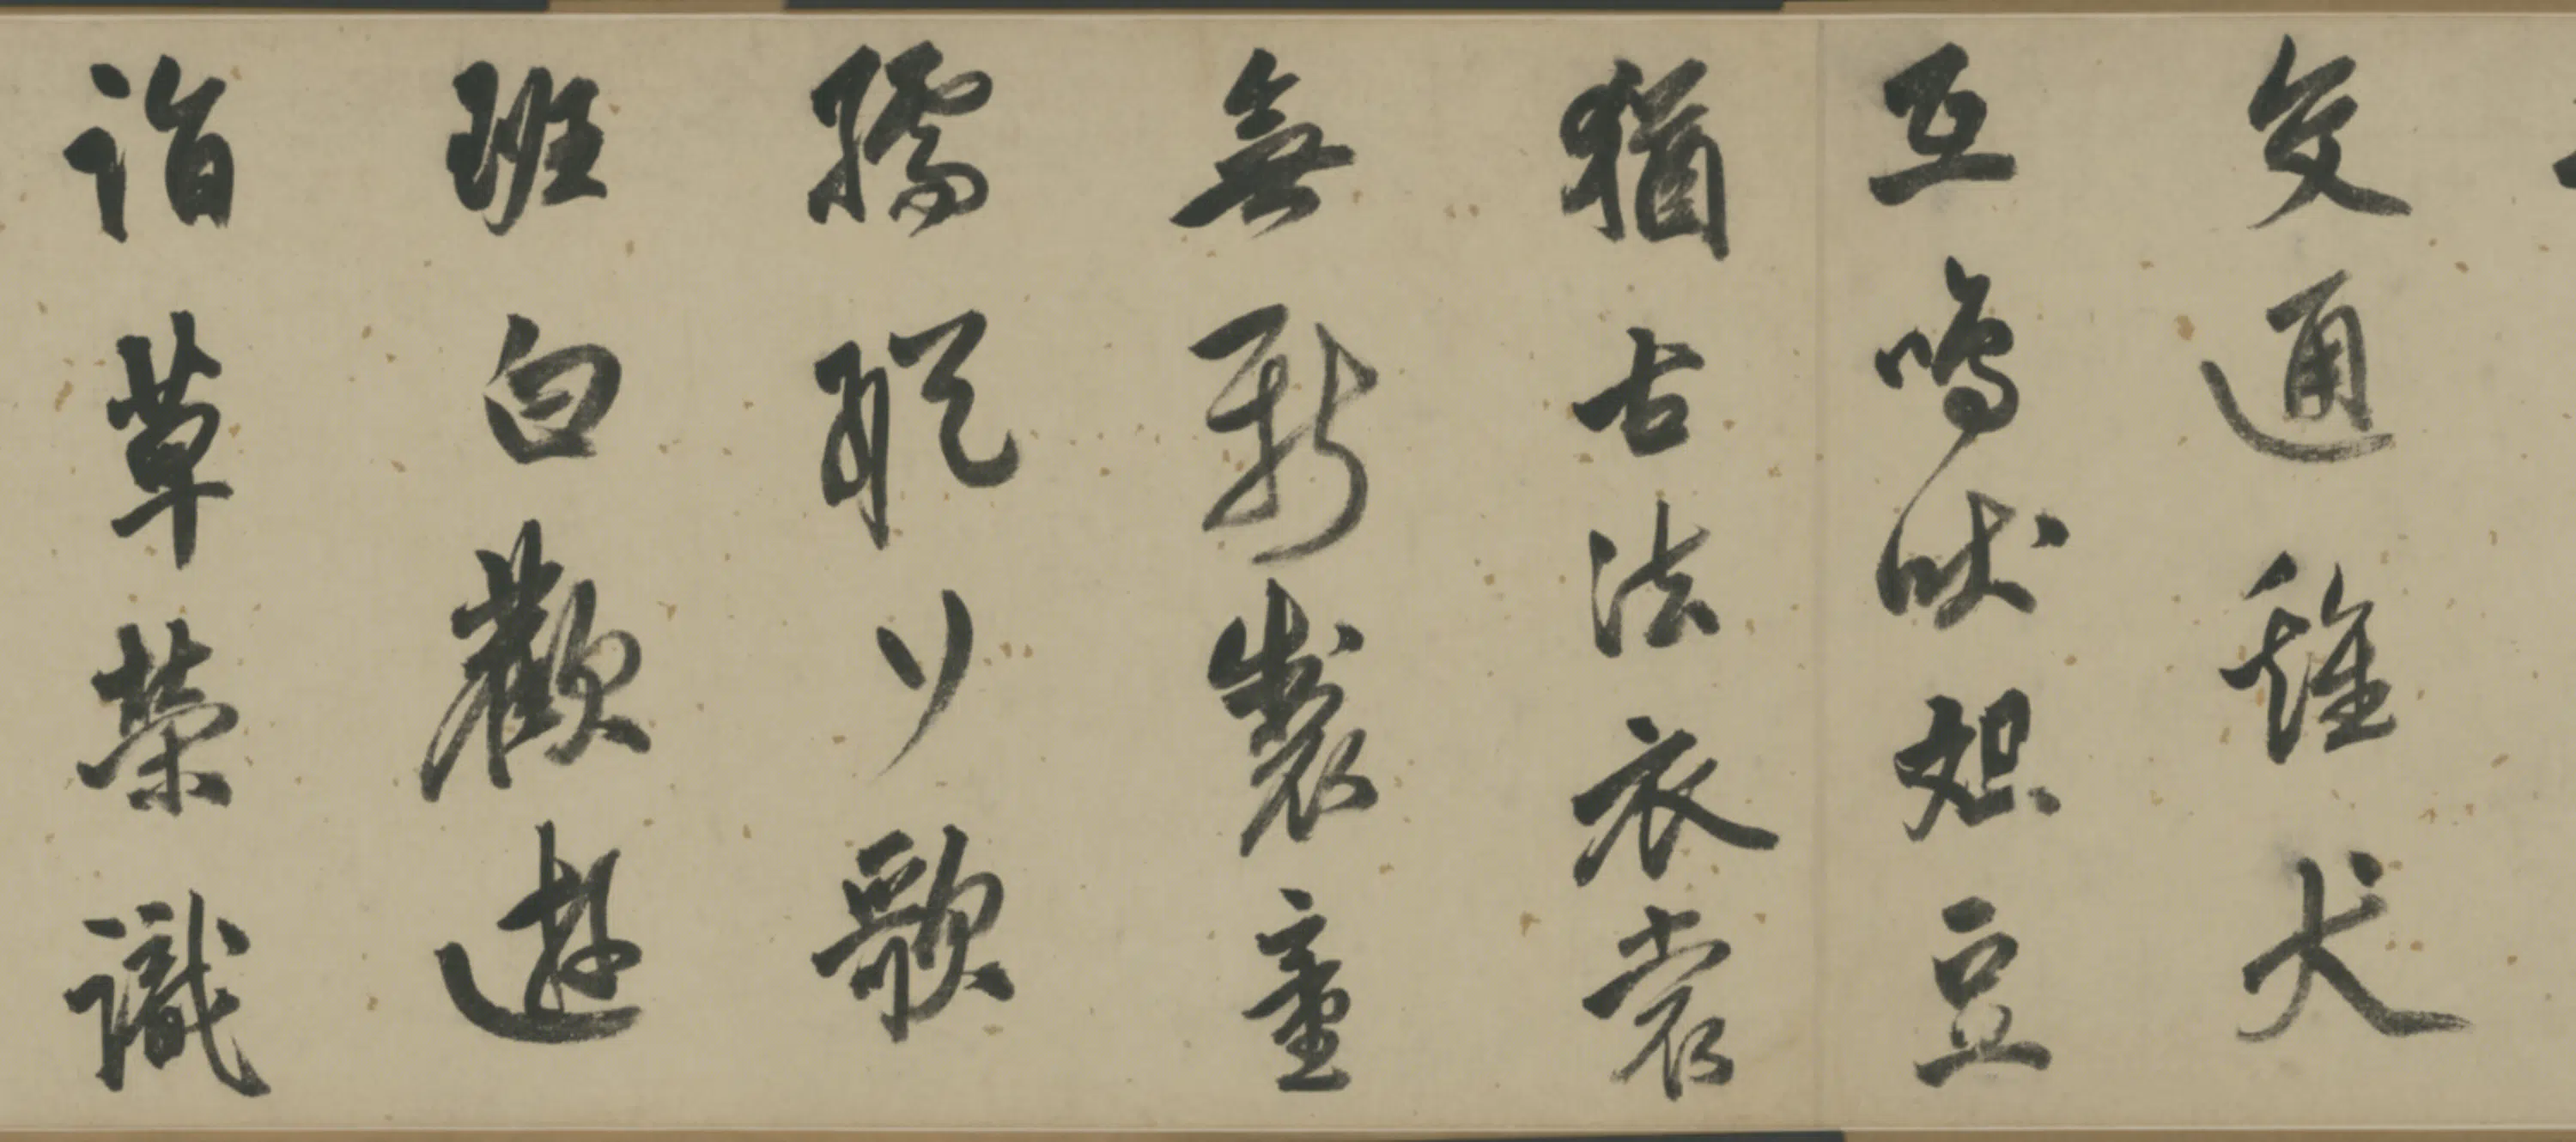 交通雞犬
互鳴吠俎豆
猶古法衣裳
無新製童
孺縱行歌
班白歡遊
詣草榮識